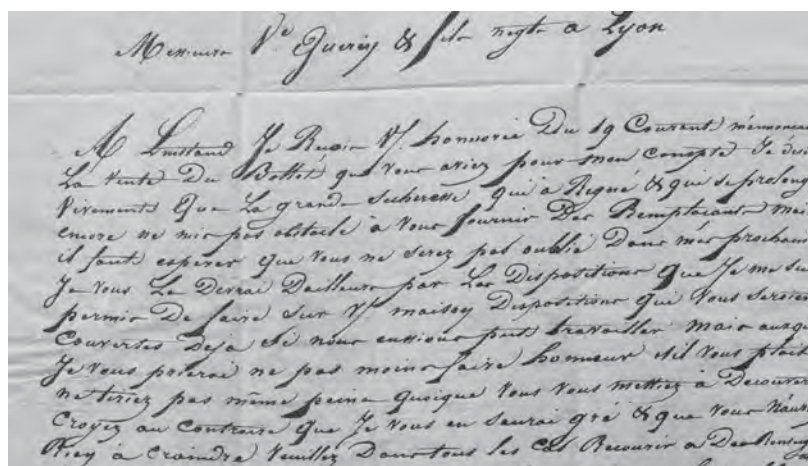 Messieurs Ve Guerin & fils negts a Lyon
A L'instant Je Recois V/. honnorée Du 19 Courant
La Vente Du Ballot que Vous aviez pour mon compte Je
Vivement Que La grande Secheresse qui à Regné & qui se prolonge
encore ne mis pas obstacle à Vous fournir Des Remplacants mais
il faut esperer que Vous ne serez pas oublié Dans mes prochains
Je Vous Le Devrai Dailleurs par Les Dispositions que Je me suis
permis De faire Sur V/. maison Dispositions qui Vous seroient
Couvertes Deja Si nous eussions peut travailler mais
Je Vous prierai ne pas moins faire honneur s'il Vous plait
ne tiriez pas même peine quoique Vous Vous mettiez à Decouvert
Croyez au Contraire que Je Vous en Saurai gré & que Vous
Rien à craindre Veuillez Dans tous les cas Recourir a Des